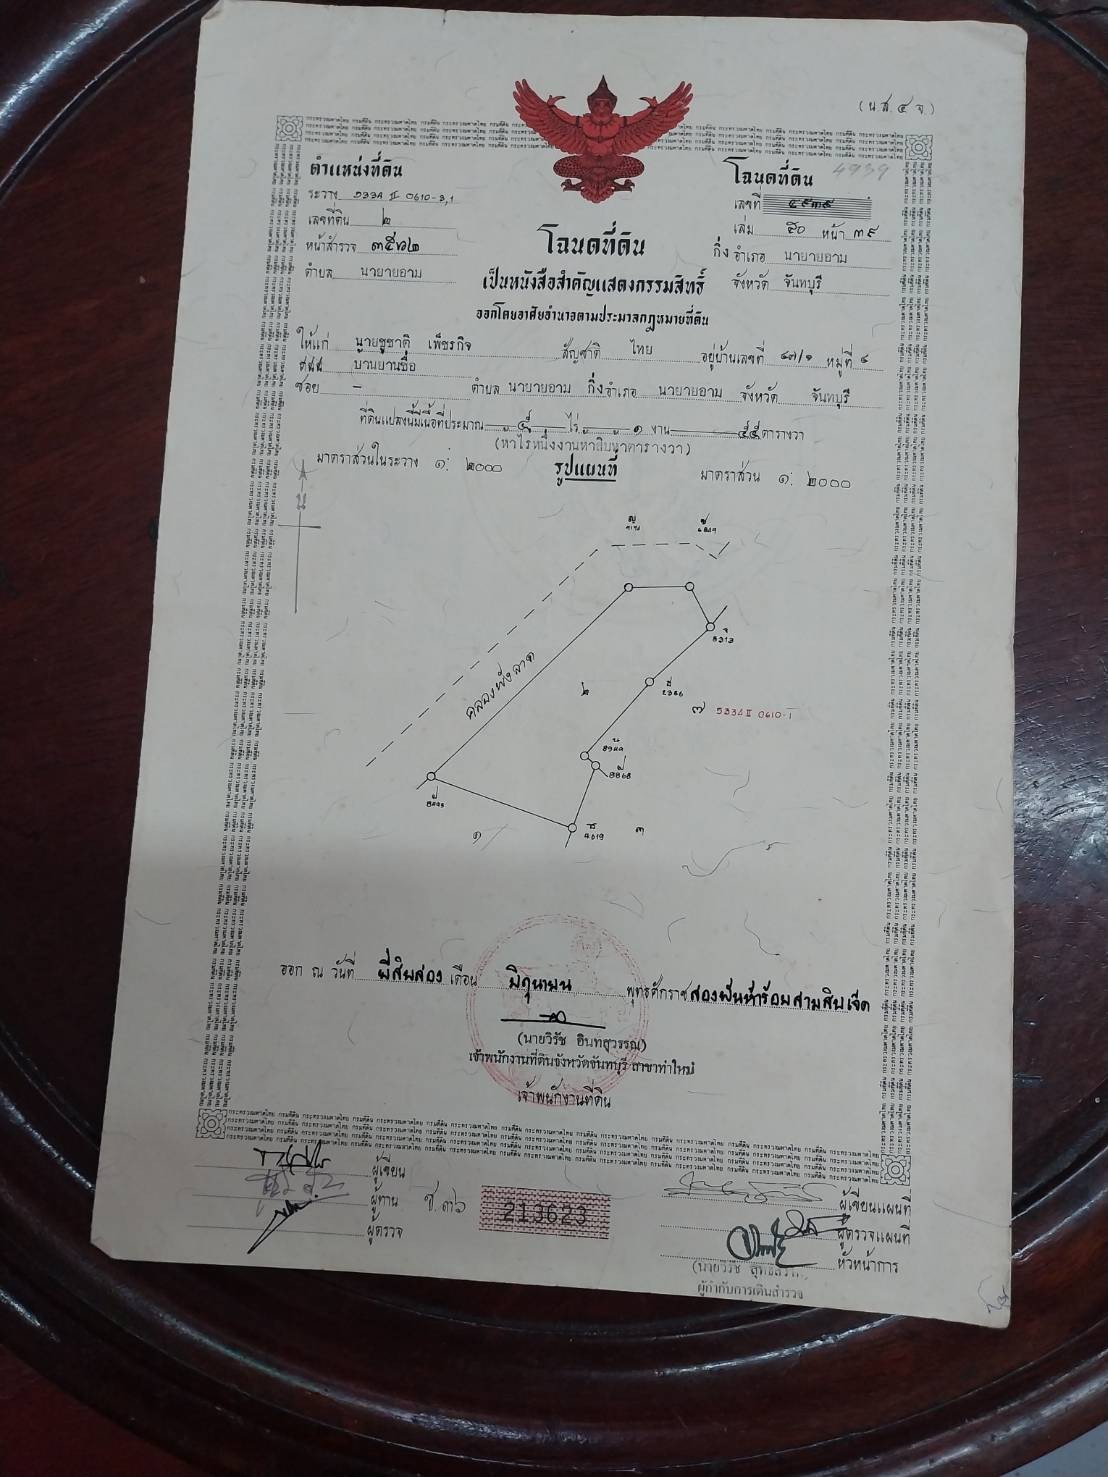 (น.ส.๔ จ.)
ตำแหน่งที่ดิน
ระวาง 5334 II 0610-3,1
เลขที่ดิน ๒
หน้าสำรวจ
ตำบล นายายอาม
โฉนดที่ดิน 4939
เลขที่ ๔๙๓๙
เล่ม ๕๐ หน้า ๓๙
กิ่ง อำเภอ นายายอาม
จังหวัด จันทบุรี
โฉนดที่ดิน
เป็นหนังสือสำคัญแสดงกรรมสิทธิ์
ออกโดยอาศัยอำนาจตามประมวลกฎหมายที่ดิน
ให้แก่ นายชูชาติ เพ็ชรกิจ สัญชาติ ไทย อยู่บ้านเลขที่ ๔๗/๑ หมู่ที่ ๔
บ้านยานซื่อ
ซอย – ตำบล นายายอาม กิ่งอำเภอ นายายอาม จังหวัด จันทบุรี
ที่ดินแปลงนี้มีเนื้อที่ประมาณ ๕ ไร่ ๑ งาน ๕๕ ตารางวา
(ห้าไร่หนึ่งงานห้าสิบห้าตารางวา)
มาตราส่วนในระวาง ๑: ๒๐๐๐ รูปแผนที่ มาตราส่วน ๑: ๒๐๐๐
น
คลองพังลาด
๒
๗ 5334 II 0610-1
๑
๓
ออก ณ วันที่ ยี่สิบสอง เดือน มิถุนายน พุทธศักราช สองพันห้าร้อยสามสิบเจ็ด
(นายวิรัช อินทสุวรรณ)
เจ้าพนักงานที่ดินจังหวัดจันทบุรี สาขาท่าใหม่
เจ้าพนักงานที่ดิน
ผู้เขียน
ผู้ทาน
ผู้ตรวจ
213623
ผู้เขียนแผนที่
ผู้ตรวจแผนที่
หัวหน้าการ
ผู้กำกับการเดินสำรวจ